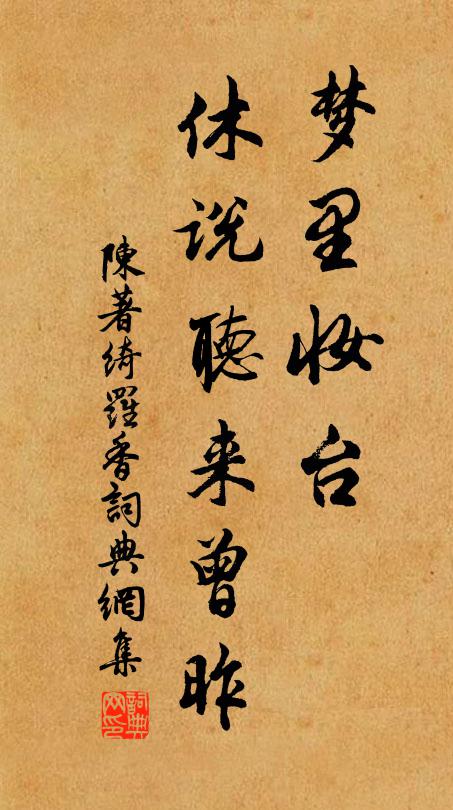 梦里妆台
休说聽来曾昨
陳著綺羅香詞典網集
詞典网印